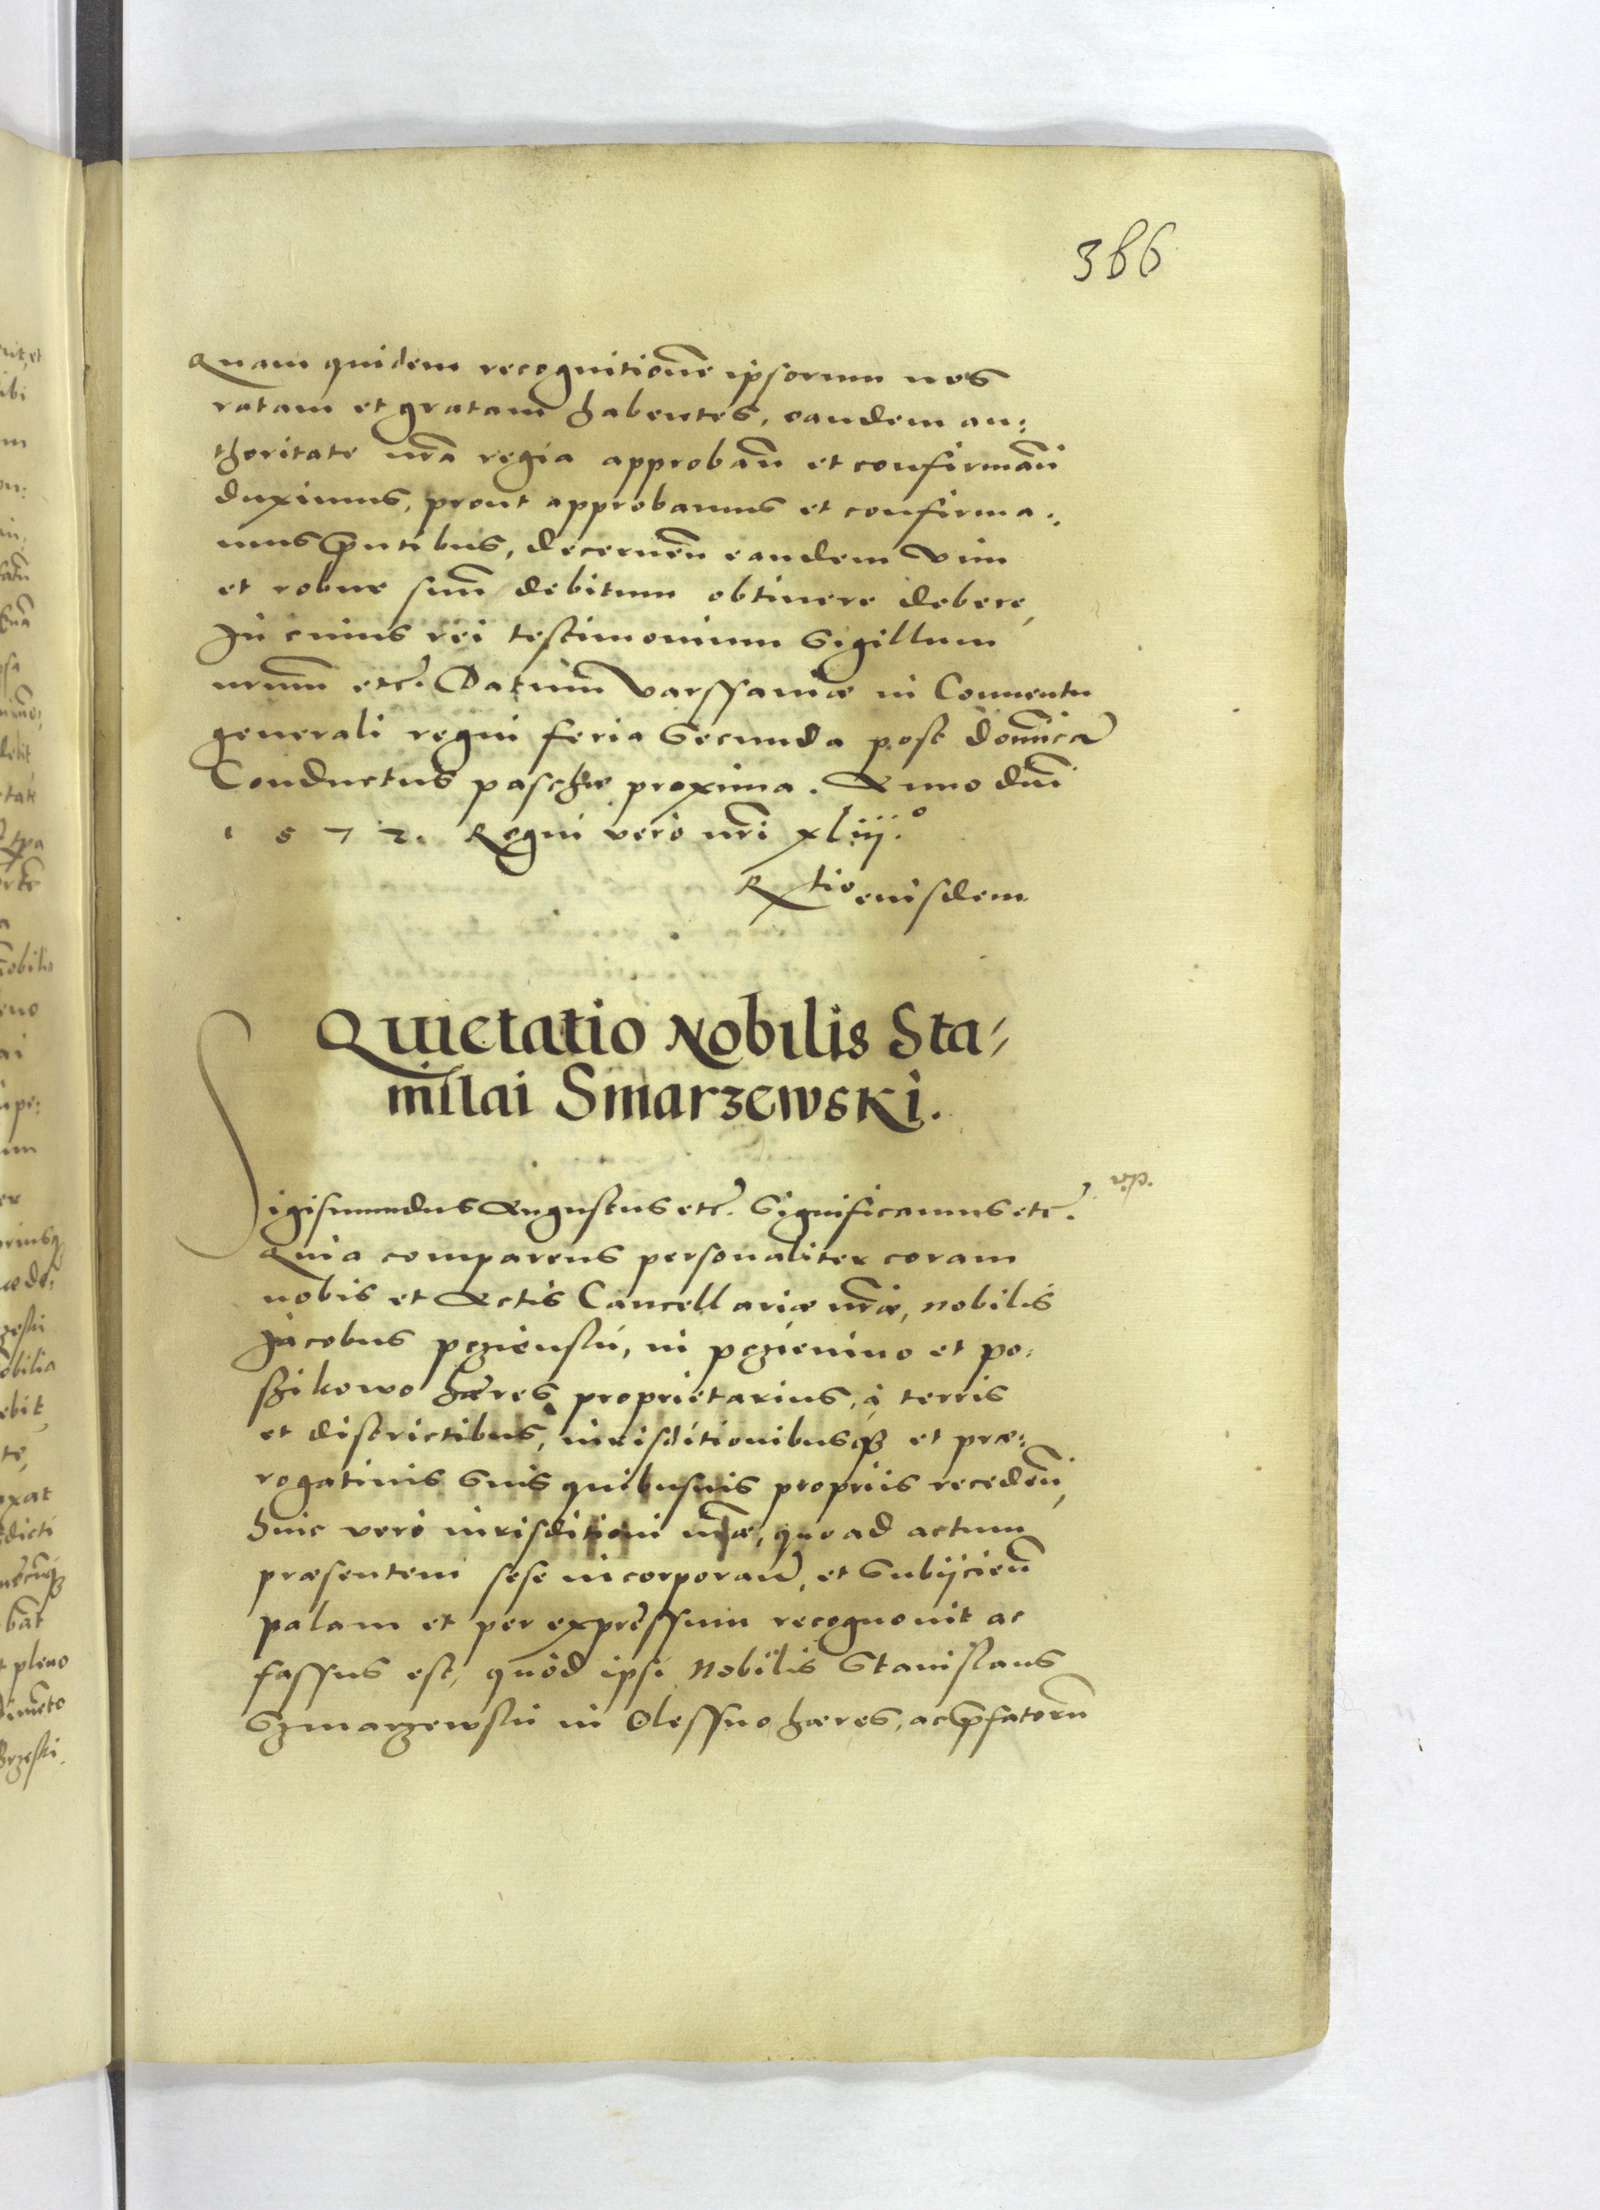 386
Quam quidem recognitionē ipsorum nos
ratam et gratam habentes, eandem au:
thoritate nr̃a regia approbañ et confirmañ
duximus, prout approbamus et confirma:
mus pñtibus, decerneñ eandem vim
et robur suũ debitum obtinere debere,
In cuius rei testimonium Sigillum
nrũm etc. Datum Varssaviæ in Conuentu
generali regni feria Secunda post dominicã
Conductus paschæ proxima. Anno dñi
1572. Regni vero nr̃i xliii.°
Rtio eiusdem
Quietatio Nobilis Sta-
nislai Smarzewski.
v.p.
Sigismundus Augustus etc. Significamus etc.
Quia comparens personaliter coram
nobis et Actis Cancellariæ nr̃æ, nobilis
Jacobus pęgienski, in pęgienino et po:
haeres proprietarius, à terris
et districtibus, iurisditionibusq3 et præ:
rogatiuis suis quibusuis propriis recedeñ,
huic verò iurisditioni nr̃æ, quoad actum
præsentem sese incorporañ, et Subijcieñ
palam et per expressum recognouit ac
fassus est, quòd ipsi Nobilis Stanislaus
Szmarzewski in Olessno haeres, ac p̃fatorũ